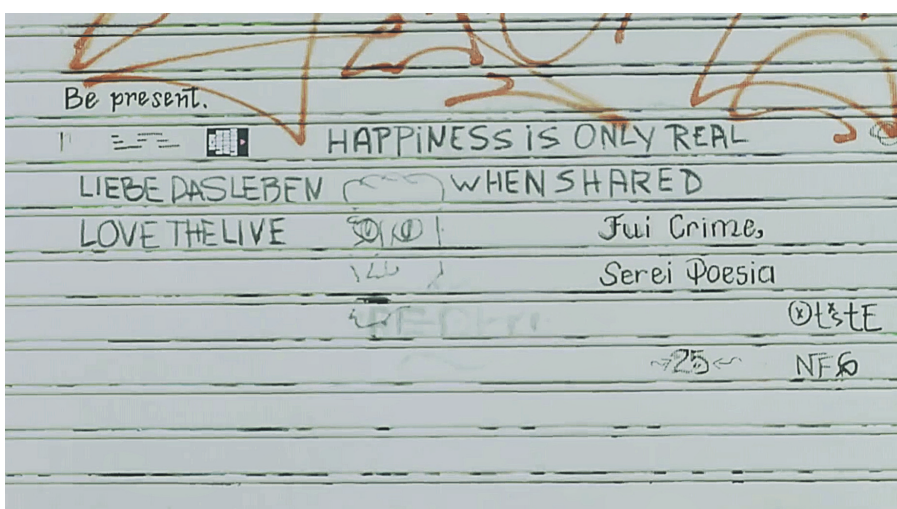 Be present.
HAPPiNESS iS ONLY REAL
WHEN SHARED
LIEBE DAS LEBEN
LOVE THE LIVE
Fui Crime,
Serei Poesia
25